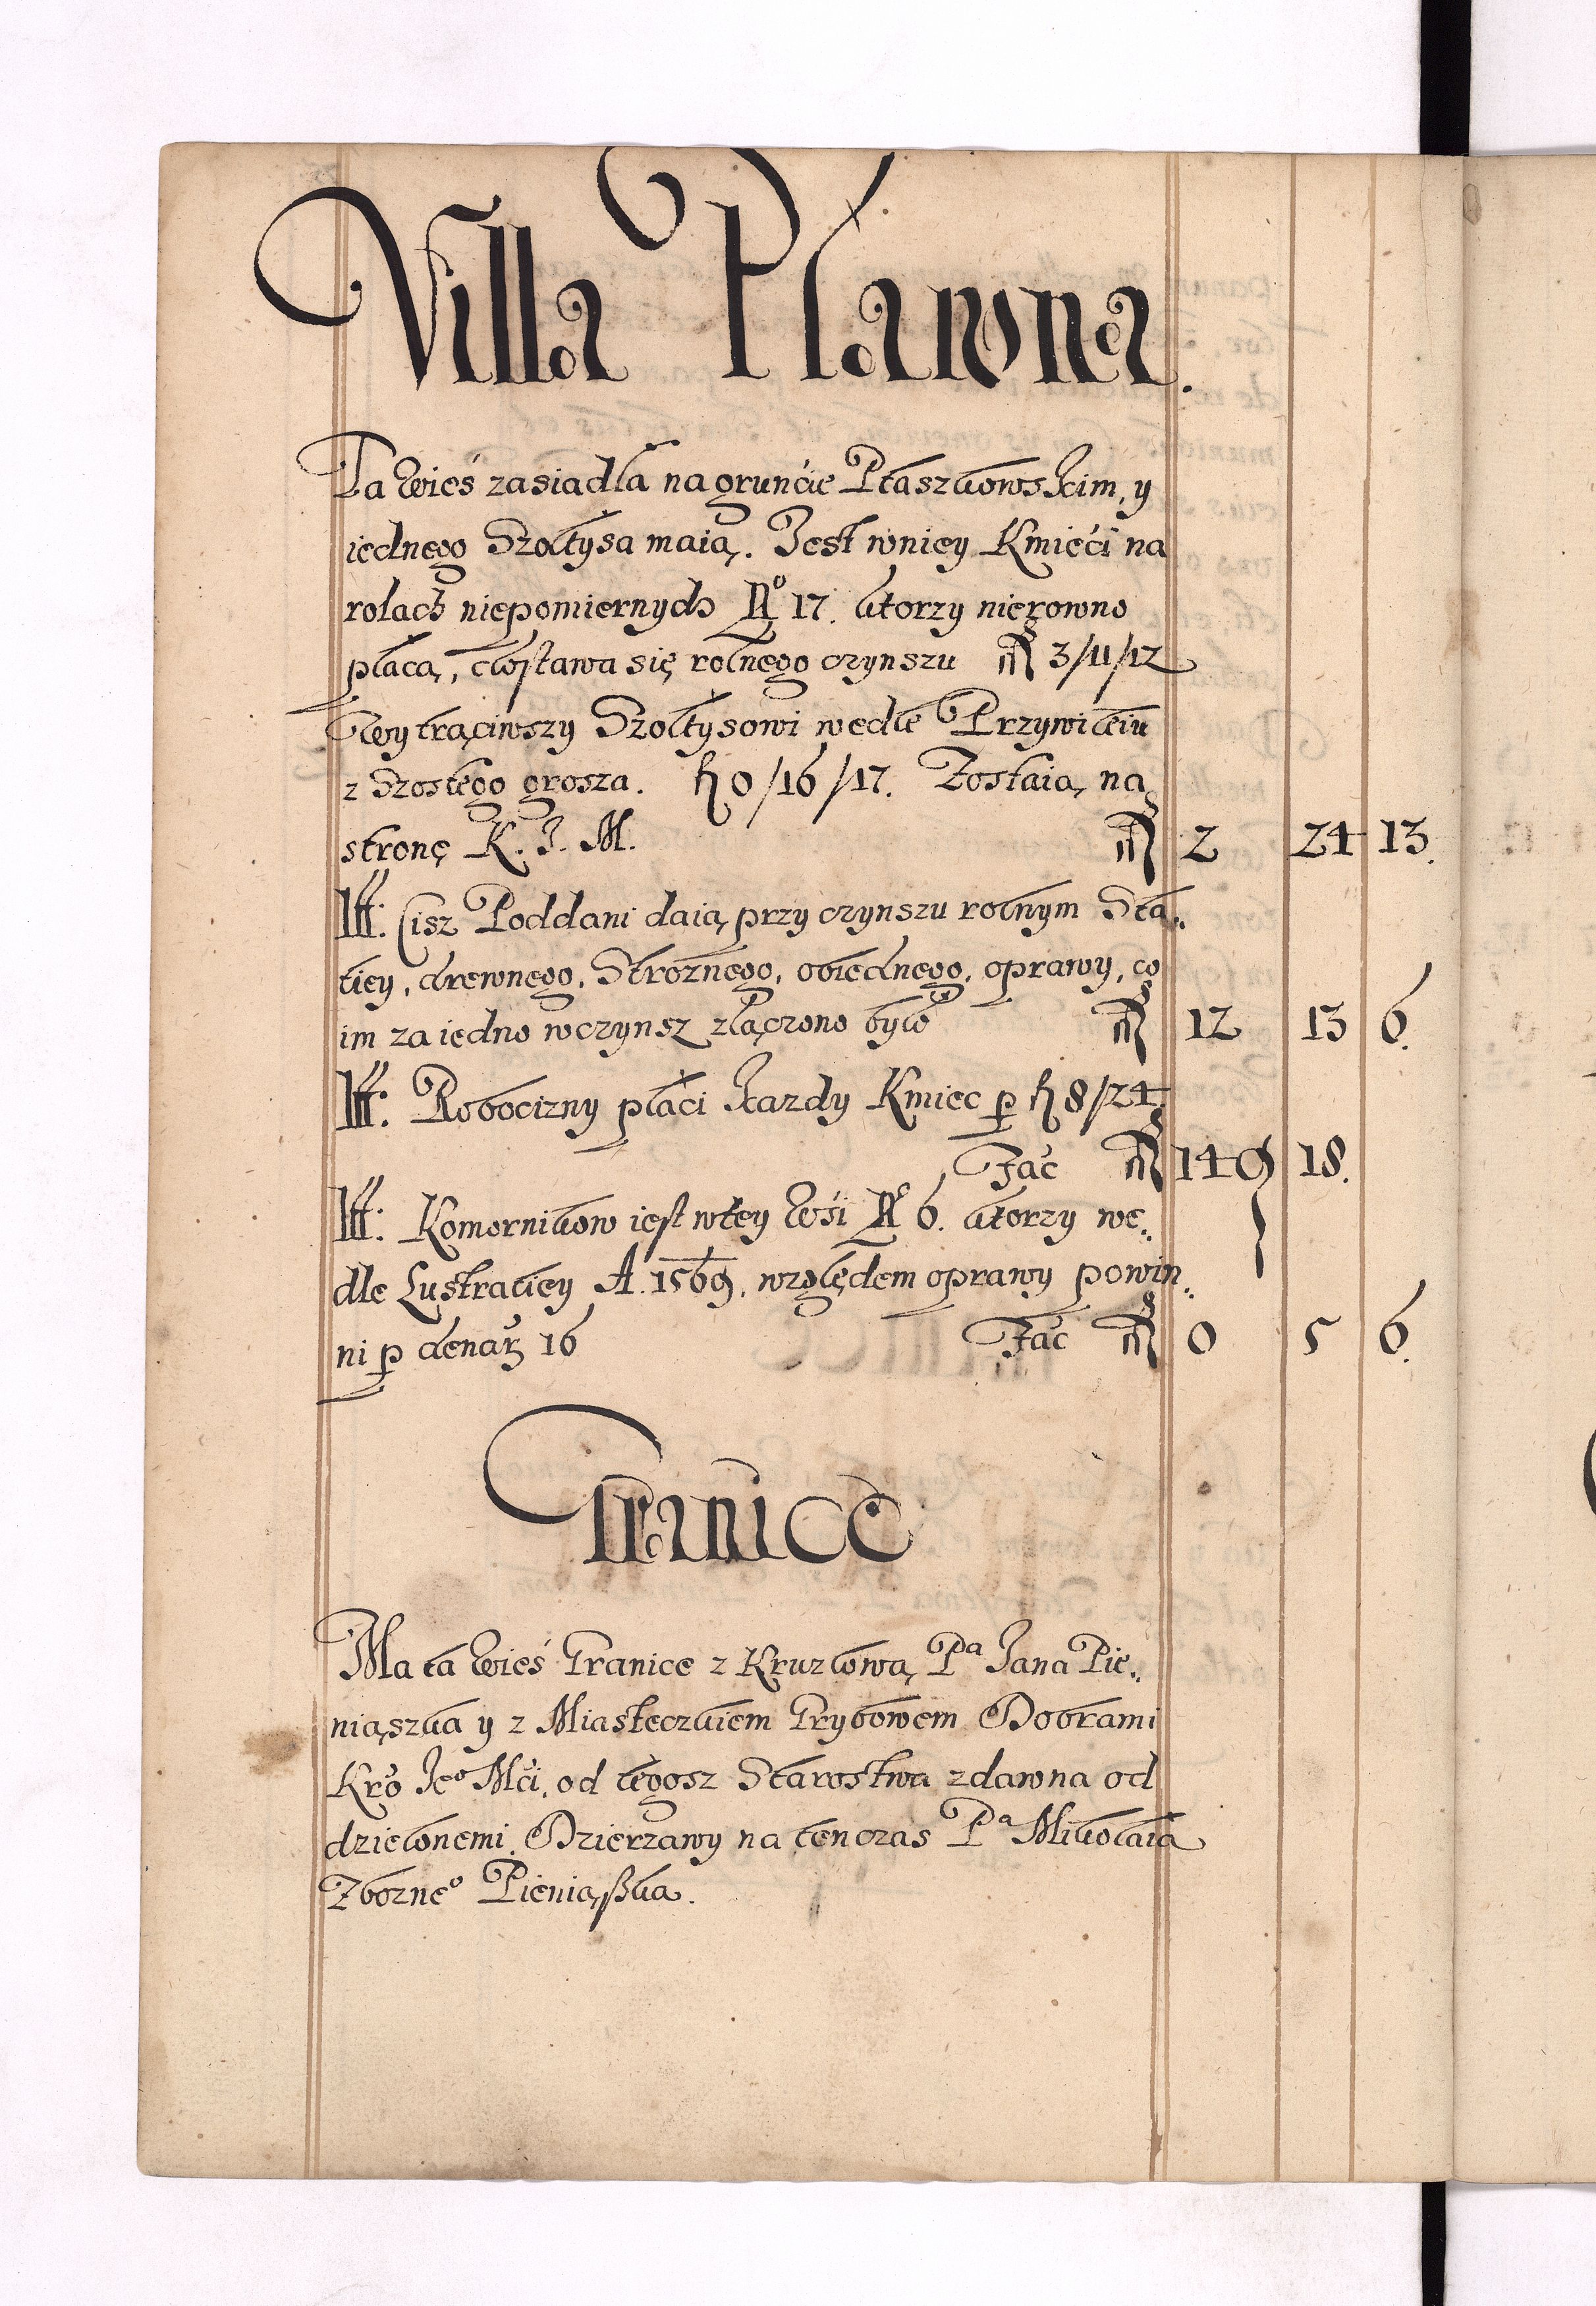 Villa Pławna.
Ta Wieś zasiadła na gruncie Ptaszkowskim, y
iednego Szołtysa maią. Jest wniey Kmieci na
rolach niepomiernych No 17. ktorzy nierowno
płacą, dostawa się rolnego czynszu 3/11/12
Wytrąciwszy Szołtysowi wedle Przywileiu
z Szostego grosza. fl 0/16/17. Zostaią na
stronę K. J. M. 2 24 13.
Itt: Cisz Poddani daią przy czynszu rolnym Sta:
tiey, drewnego, Stroznego, obiednego, oprawy, co
im za iedno wczynsz złączono było 12 13 6.
Itt: Robocizny płaci kazdy Kmiec p fl 8/24
Fac 149 18.
Itt: Komornikow iest wtey Wsi No 6. ktorzy we:
dle Lustratiey A. 1569. względem oprawy powin:
ni p denar 16 Fac 0 5 6.
Granice
Ma ta Wieś Granice z Kruzlową Pa Jana Pie:
niąszka y z Miasteczkiem Grybowem Dobrami
Kro Jeo Mci, od tegosz Starostwa zdawna od
dzielonemi. Dzierzawy na ten czas Pa Mikołaia
Zborneo Pieniąßka.